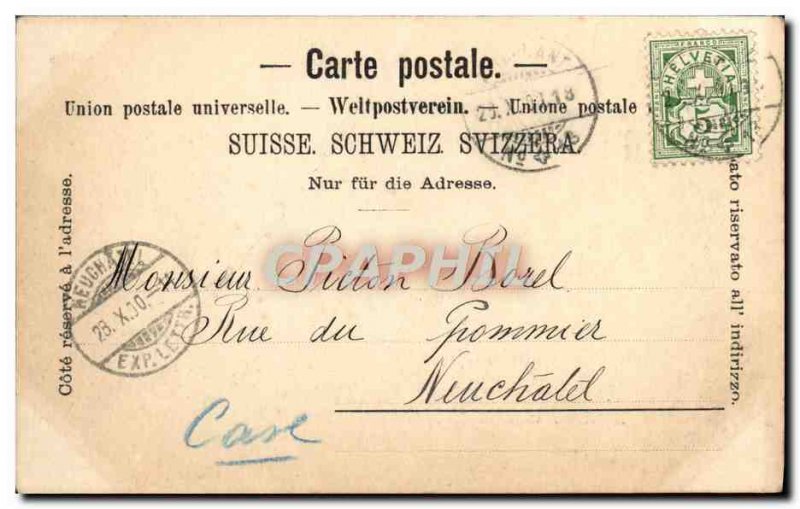 — Carte postale. —
Union postale universelle. — Weltpostverein. — Unione postale
SUISSE. SCHWEIZ. SVIZZERA.
Nur für die Adresse.
HELVETIA
5
Côté réservé à l'adresse.
lato riservato all' indirizzo.
NEUCHÂTEL
23.X.00
EXP. LETTR.
CPRAPHIL
Monsieur Borel
Rue du Pommier
Neuchâtel
Case